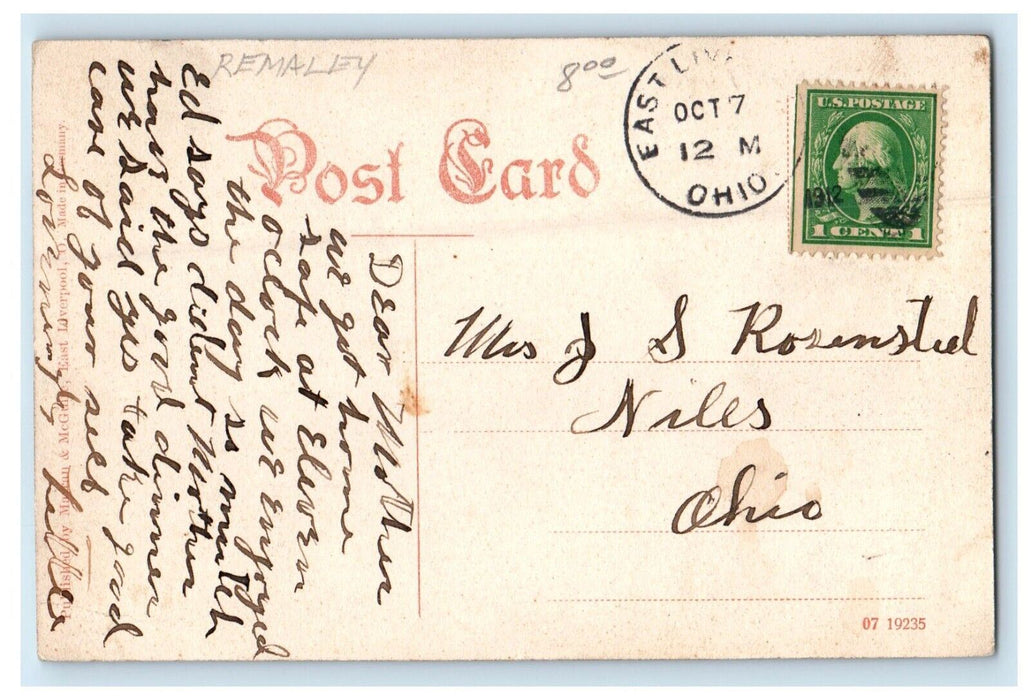 REMALEY
8 00
Post Card
EAST LIV
OCT 7
12 M
1912
OHIO
U.S. POSTAGE
1 CENT 1
Dear Mother
we got home
safe at Eleven
oclock we Enjoyed
the day so mutch
Ed says didnt Mother
have the good dinner
we said yes take good
care of your self
Lovingly Lillie
Mrs J S Rosensteel
Niles
Ohio
Published by & McG East Liverpool, O. Made in Germany.
07 19235